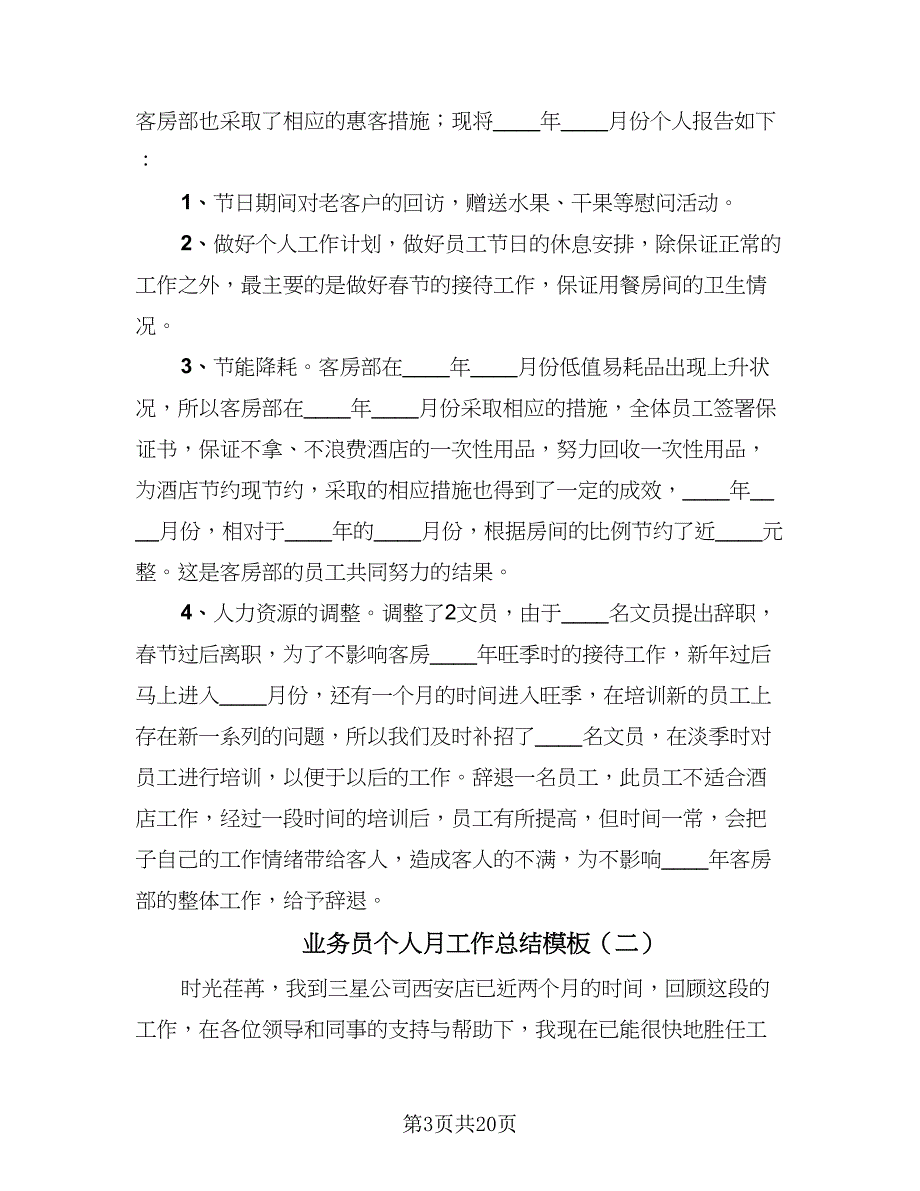 客房部也采取了相应的惠客措施；现将____年____月份个人报告如下
：
1、节日期间对老客户的回访，赠送水果、干果等慰问活动。
2、做好个人工作计划，做好员工节日的休息安排，除保证正常的
工作之外，最主要的是做好春节的接待工作，保证用餐房间的卫生情
况。
3、节能降耗。客房部在____年____月份低值易耗品出现上升状
况，所以客房部在____年____月份采取相应的措施，全体员工签署保
证书，保证不拿、不浪费酒店的一次性用品，努力回收一次性用品，
为酒店节约现节约，采取的相应措施也得到了一定的成效，____年__
__月份，相对于____年的____月份，根据房间的比例节约了近____元
整。这是客房部的员工共同努力的结果。
4、人力资源的调整。调整了2文员，由于____名文员提出辞职，
春节过后离职，为了不影响客房____年旺季时的接待工作，新年过后
马上进入____月份，还有一个月的时间进入旺季，在培训新的员工上
存在新一系列的问题，所以我们及时补招了____名文员，在淡季时对
员工进行培训，以便于以后的工作。辞退一名员工，此员工不适合酒
店工作，经过一段时间的培训后，员工有所提高，但时间一常，会把
子自己的工作情绪带给客人，造成客人的不满，为不影响____年客房
部的整体工作，给予辞退。
业务员个人月工作总结模板（二）
时光荏苒，我到三星公司西安店已近两个月的时间，回顾这段的
工作，在各位领导和同事的支持与帮助下，我现在已能很快地胜任工
第3页共20页